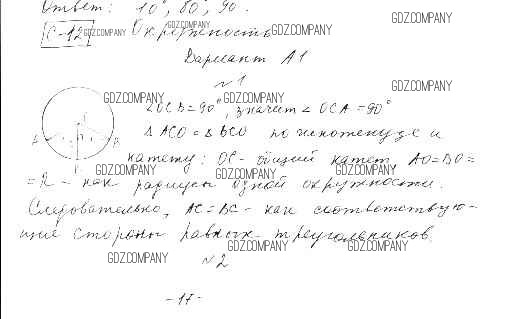 Ответ: 10°, 80°, 90°.
С-12 Окружность
Вариант А1
№1
∠OCB = 90°, значит ∠OCA = 90°
ΔACO = ΔBCO по гипотенузе и
катету: OC - общий катет AO=BO=
=R - как радиусы одной окружности.
Следовательно, AC=BC - как соответствую-
щие стороны равных треугольников.
№2
-17-
GDZ.COMPANY
GDZ.COMPANY
GDZ.COMPANY
GDZ.COMPANY
GDZ.COMPANY
GDZ.COMPANY
GDZ.COMPANY
GDZ.COMPANY
GDZ.COMPANY
GDZ.COMPANY
GDZ.COMPANY
GDZ.COMPANY
GDZ.COMPANY
GDZ.COMPANY